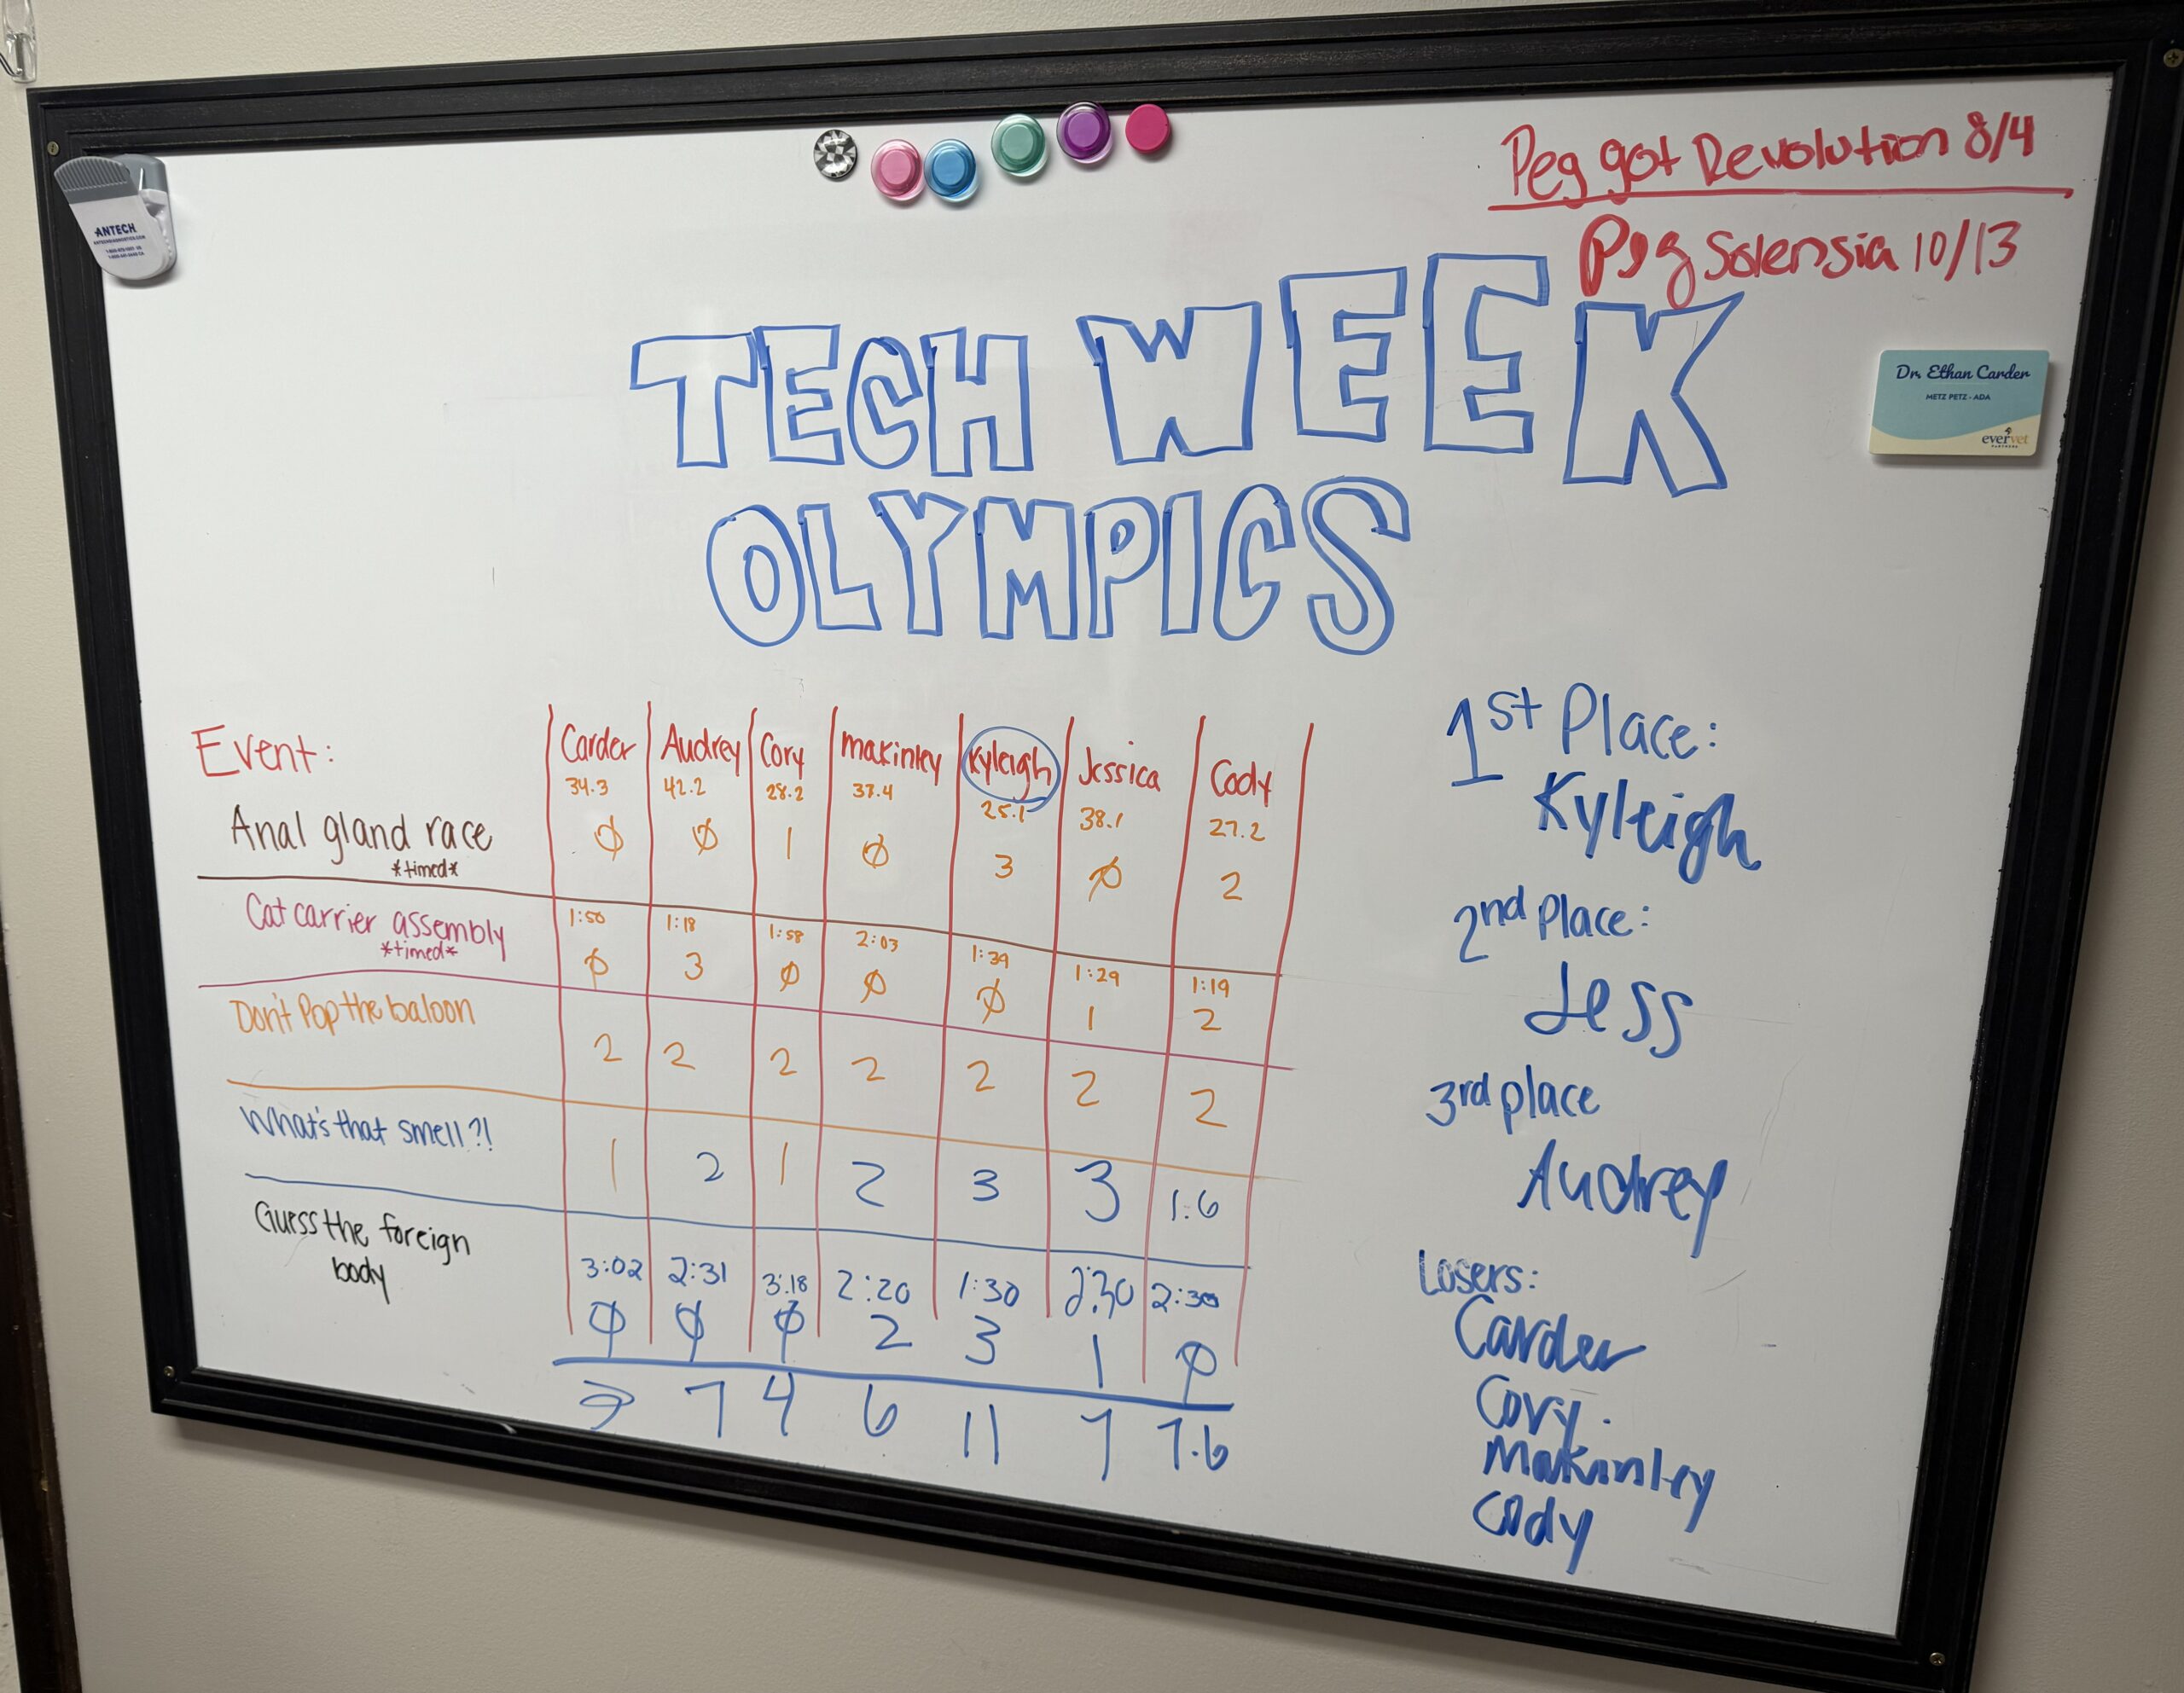 Peg got Revolution 8/4
Peg Solensia 10/13
ANTECH
Dr. Ethan Carder
METZ PETZ - ADA
evervet
PARTNERS
TECH WEEK
OLYMPICS
Event: Carder Audrey Cory Makinley Kyleigh Jessica Cody
34.3 42.2 28.2 37.4 25.1 38.1 27.2
Anal gland race Ø Ø 1 Ø 3 Ø 2
*timed*
Cat carrier assembly 1:50 1:18 1:58 2:03 1:39 1:29 1:19
*timed* Ø 3 Ø Ø Ø 1 2
Don't Pop the baloon 2 2 2 2 2 2 2
What's that smell?! 1 2 1 2 3 3 1.6
Guess the foreign 3:02 2:31 3:18 2:20 1:30 2:30 2:30
body Ø Ø Ø 2 3 1 Ø
7 4 6 11 7 7.6
1st Place:
Kyleigh
2nd Place:
Jess
3rd place
Audrey
Losers:
Carder
Cory
Makinley
Cody